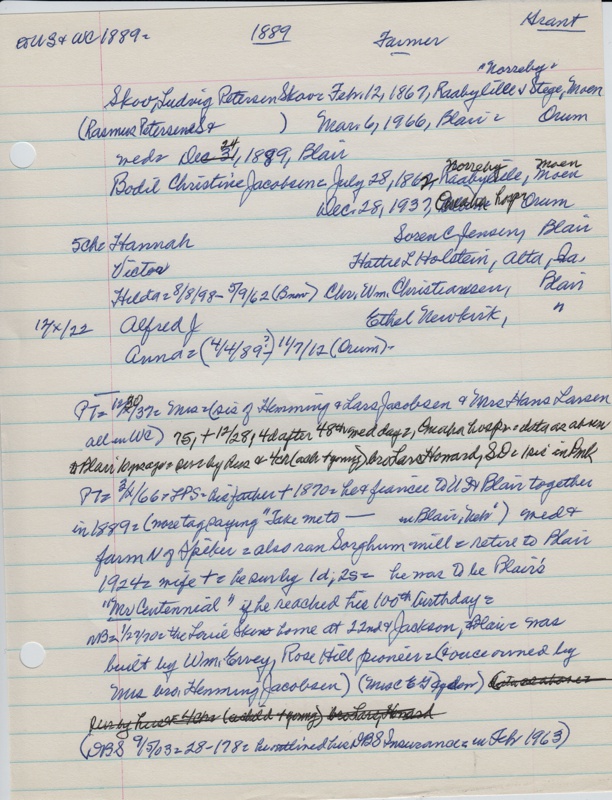 Grant
to US & WC 1889= 1889 Farmer
"Norreby"
Skov, Ludvig Petersen Skov= Febr. 12, 1867, Raabylille & Stege, Moen
(Rasmus Petersen S & ) Mar. 6, 1966, Blair= Orum
med= Dec 24, 1889, Blair
Norreby Moen
Bodil Christine Jacobsen= July 28, 1862, Raabylille, Moen
Dec. 28, 1937, Omaha hosp Orum
5ch= Hannah Soren C Jensen, Blair
Victor Hattie L Holstein, Alta, Ia.
Hilda= 8/8/98- 5/9/62 (Bnow) Chr. Wm. Christiansen, Blair
12/x/22 Alfred J Ethel Newkirk, "
Anna= (4/4/89?-) 11/7/12 (Orum)-
PT= 12/30/37= Mrs= (sis of Hemming & Lars Jacobsen & Mrs Hans Larsen
all in WC) 75, + 12/28, 4d after 48th wed day=, Omaha hosp= as above
to Blair 10 yrs ago= surv by Russ & 4ch bro Lars Howard, SD= 1 sis in Dmk
PT= 3/x/66= LPS= his father + 1870= he & fiancee to US & Blair together
in 1889= (nose tag saying "Take me to — in Blair, Neb") med &
farm N of Spiker= also ran Sorghum mill= retire to Blair
1924= wife += he surv by 1d, 2s= he was to be Blair's
"Mr Centennial" if he reached his 100th birthday=
NB= 1/27/70= the Louie Skov home at 22nd & Jackson, Blair= was
built by Wm. Ervey, Rose Hill pioneer= (& once owned by
Mrs bro. Hemming Jacobsen)
surv by Russ & 4ch bro Lars, Howard
(DBS 9/5/03= 28-178= he outlined his DBS Insurance= in Febr 1963)